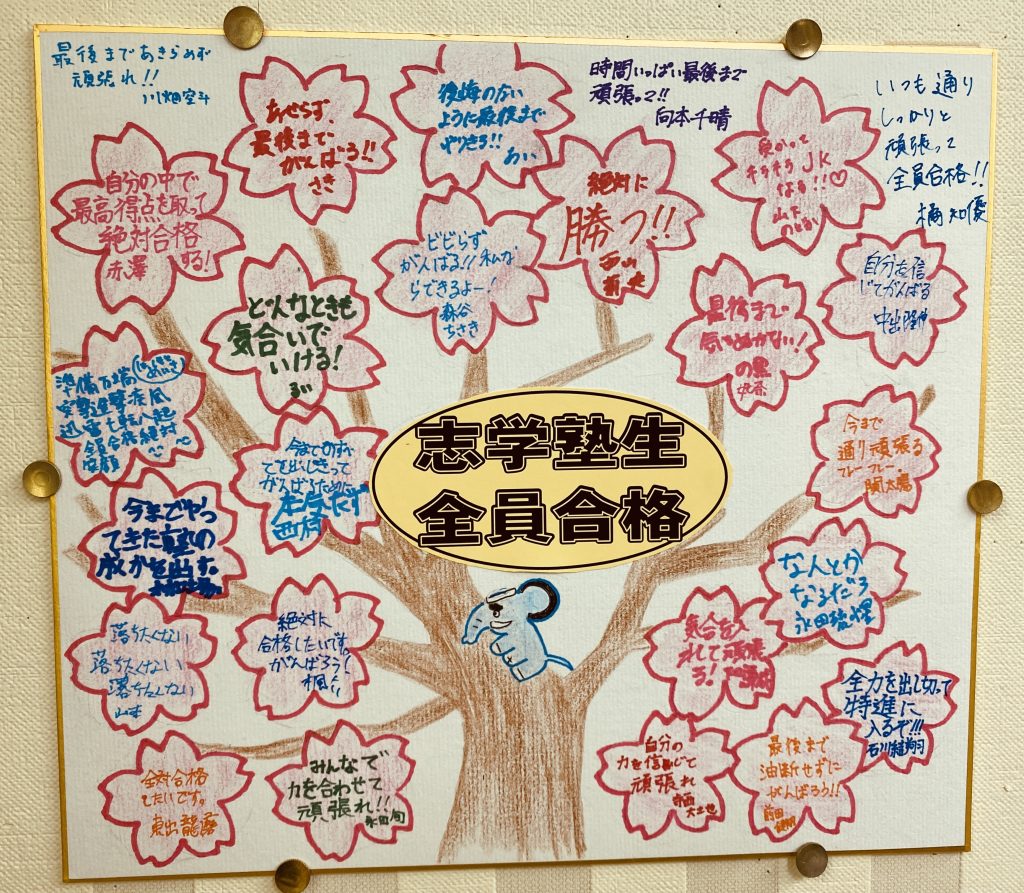 最後まであきらめず
頑張れ!!
川畑空斗
あせらず、
最後まで
がんばろ!!
さき
後悔のない
ように最後まで
やりきろ!!
あい
時間いっぱい最後まで
頑張って!!
向本千晴
受かって
キラキラJK
なる!!♡
山下
いつも通り
しっかりと
頑張って
全員合格!!
橘知優
自分の中で
最高得点を取って
絶対合格
する!
赤澤
どんなときも
気合いで
いける!
るい
ビビらず
がんばる!!私な
らできるよー!
森谷
ちさき
絶対に
勝つ!!
西山
最後まで
気をぬかない!
自分を信
じてがんばる
中出
準備万端
全員合格絶対
今まで
てを出しきって
がんばるために
西橋
志学塾生
全員合格
今まで
通り頑張る
フレーフレー
関太陽
今までやっ
てきた塾の
成かを出す。
なんとか
なるだろ
永田琉煌
落ちたくない
落ちたくない
落ちたくない
山本
絶対に
合格したいです。
がんばろう!
楓
気合を入
れて頑張
ろ!
全力を出し切って
特進に
入るぞ!!!
石川
全対合格
したいです。
東出龍露
みんなで
力を合わせて
頑張れ!!
永田旬
自分の
力を信じて
頑張れ
最後まで
油断せずに
がんばろう!!
前田